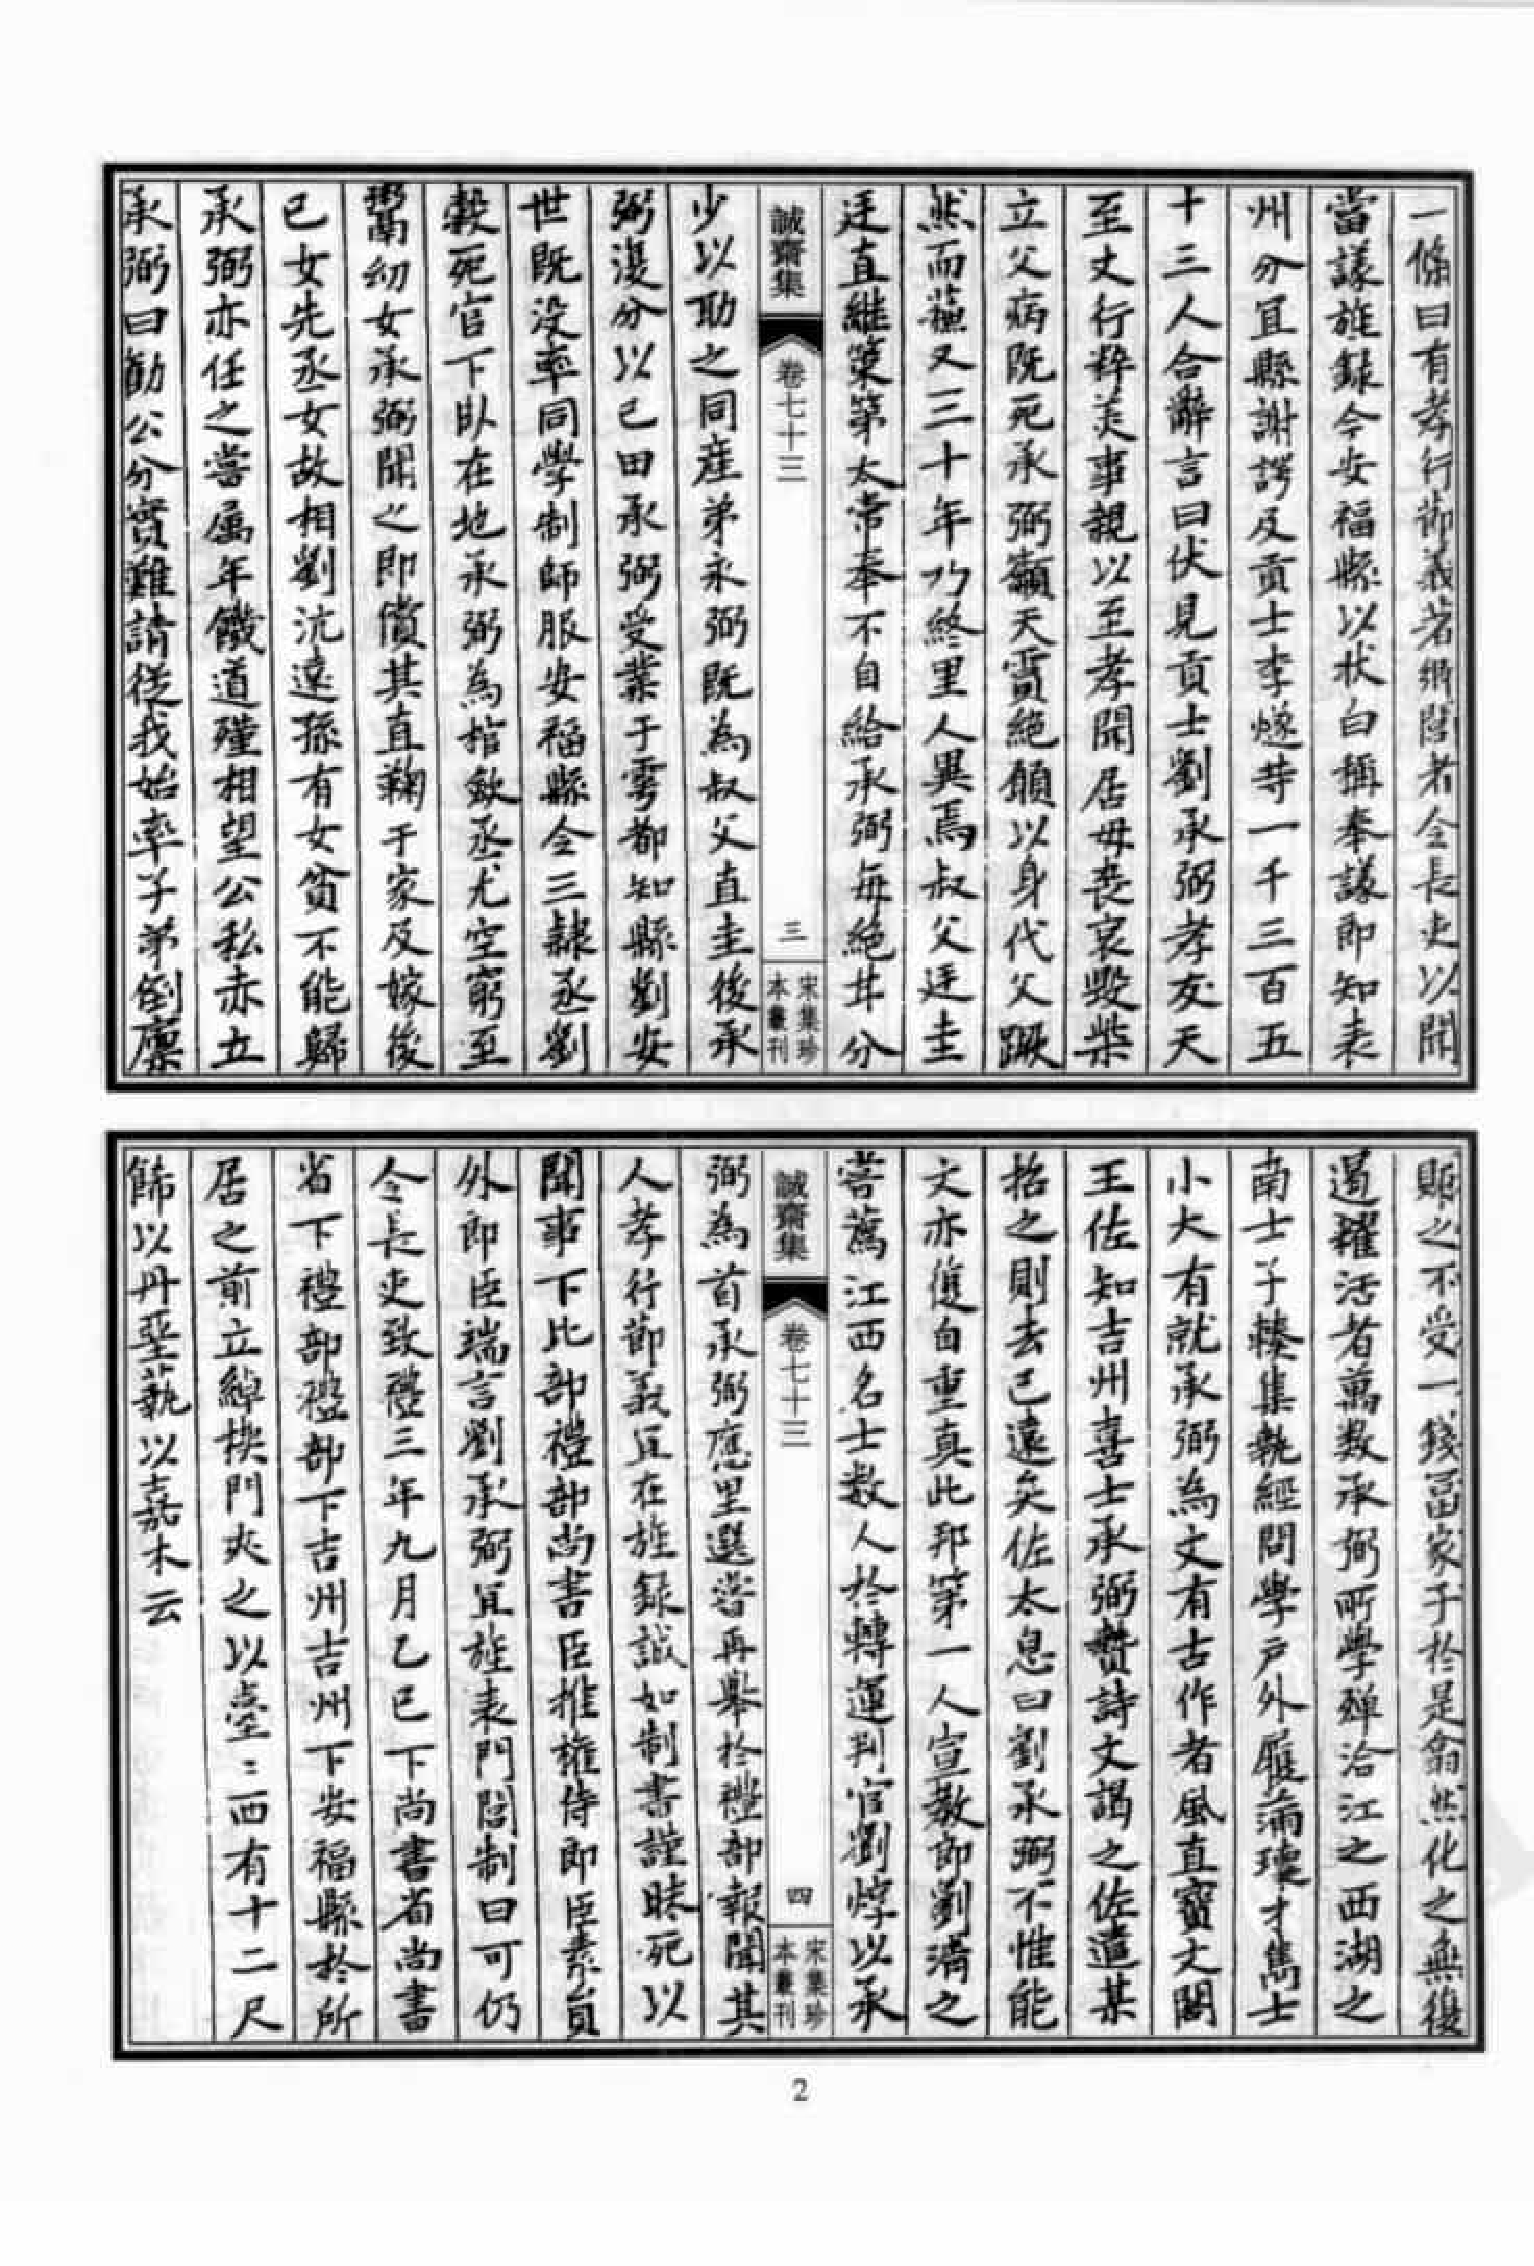 一條曰有孝行節義著鄉閭者令長吏以聞
當議旌録今安福縣以状白稱奉議郎知表
州分宜縣謝諤及貢士李燧䓁一千三百五
十三人合辭言曰伏見貢士劉承弼孝友天
至丈行粹美事親以至孝聞居母喪哀毀柴
立父病既死承弼籲天賈絶願以身代父蹶
然而蘓又三十年乃終里人異焉叔父廷圭
廷直繼䇿第太常奉不自給承弼每絶甘分
誠齋集
卷七十三
三
宋集珍本叢刊
少以助之同産弟永弼既為叔父直圭後承
弼復分以己田承弼受業于雩都知縣劉安
世既没率同學制師服安福縣令三隷丞劉
榖死官下卧在地承弼為棺斂丞尤空窮至
鬻幼女承弼聞之即償其直鞠于家及嫁後
已女先丞女故相劉沆逺孫有女貧不能歸
承弼亦任之嘗属年饑道殣相望公私赤立
承弼曰勸公分實難請從我始率子弟倒廪
賑之不受一錢冨家于於是翕然化之無復
遏糴活者萬数承弼所學殫洽江之西湖之
南士子輳集執經問學户外屨滿瓌才雋士
小大有就承弼為文有古作者風直寳文閣
王佐知吉州喜士承弼贄詩文謁之佐遣某
招之則去已遠矣佐太息曰劉承弼不惟能
文亦復自重真此邦第一人宣教郎劉清之
嘗薦江西名士数人於轉運判官劉焞以承
誠齋集
卷七十三
四
宋集珍本叢刊
弼為首承弼應里選嘗再舉於禮部報聞其
人孝行節義宜在旌録誠如制書謹昧死以
聞事下比部禮部尚書臣推權侍郎臣素員
外郎臣端言劉承弼宜旌表門閭制曰可仍
令長吏致禮三年九月乙巳下尚書省尚書
省下禮部禮部下吉州吉州下安福縣於所
居之前立綽楔門夾之以臺〻西有十二尺
餙以丹堊蓺以嘉木云
2